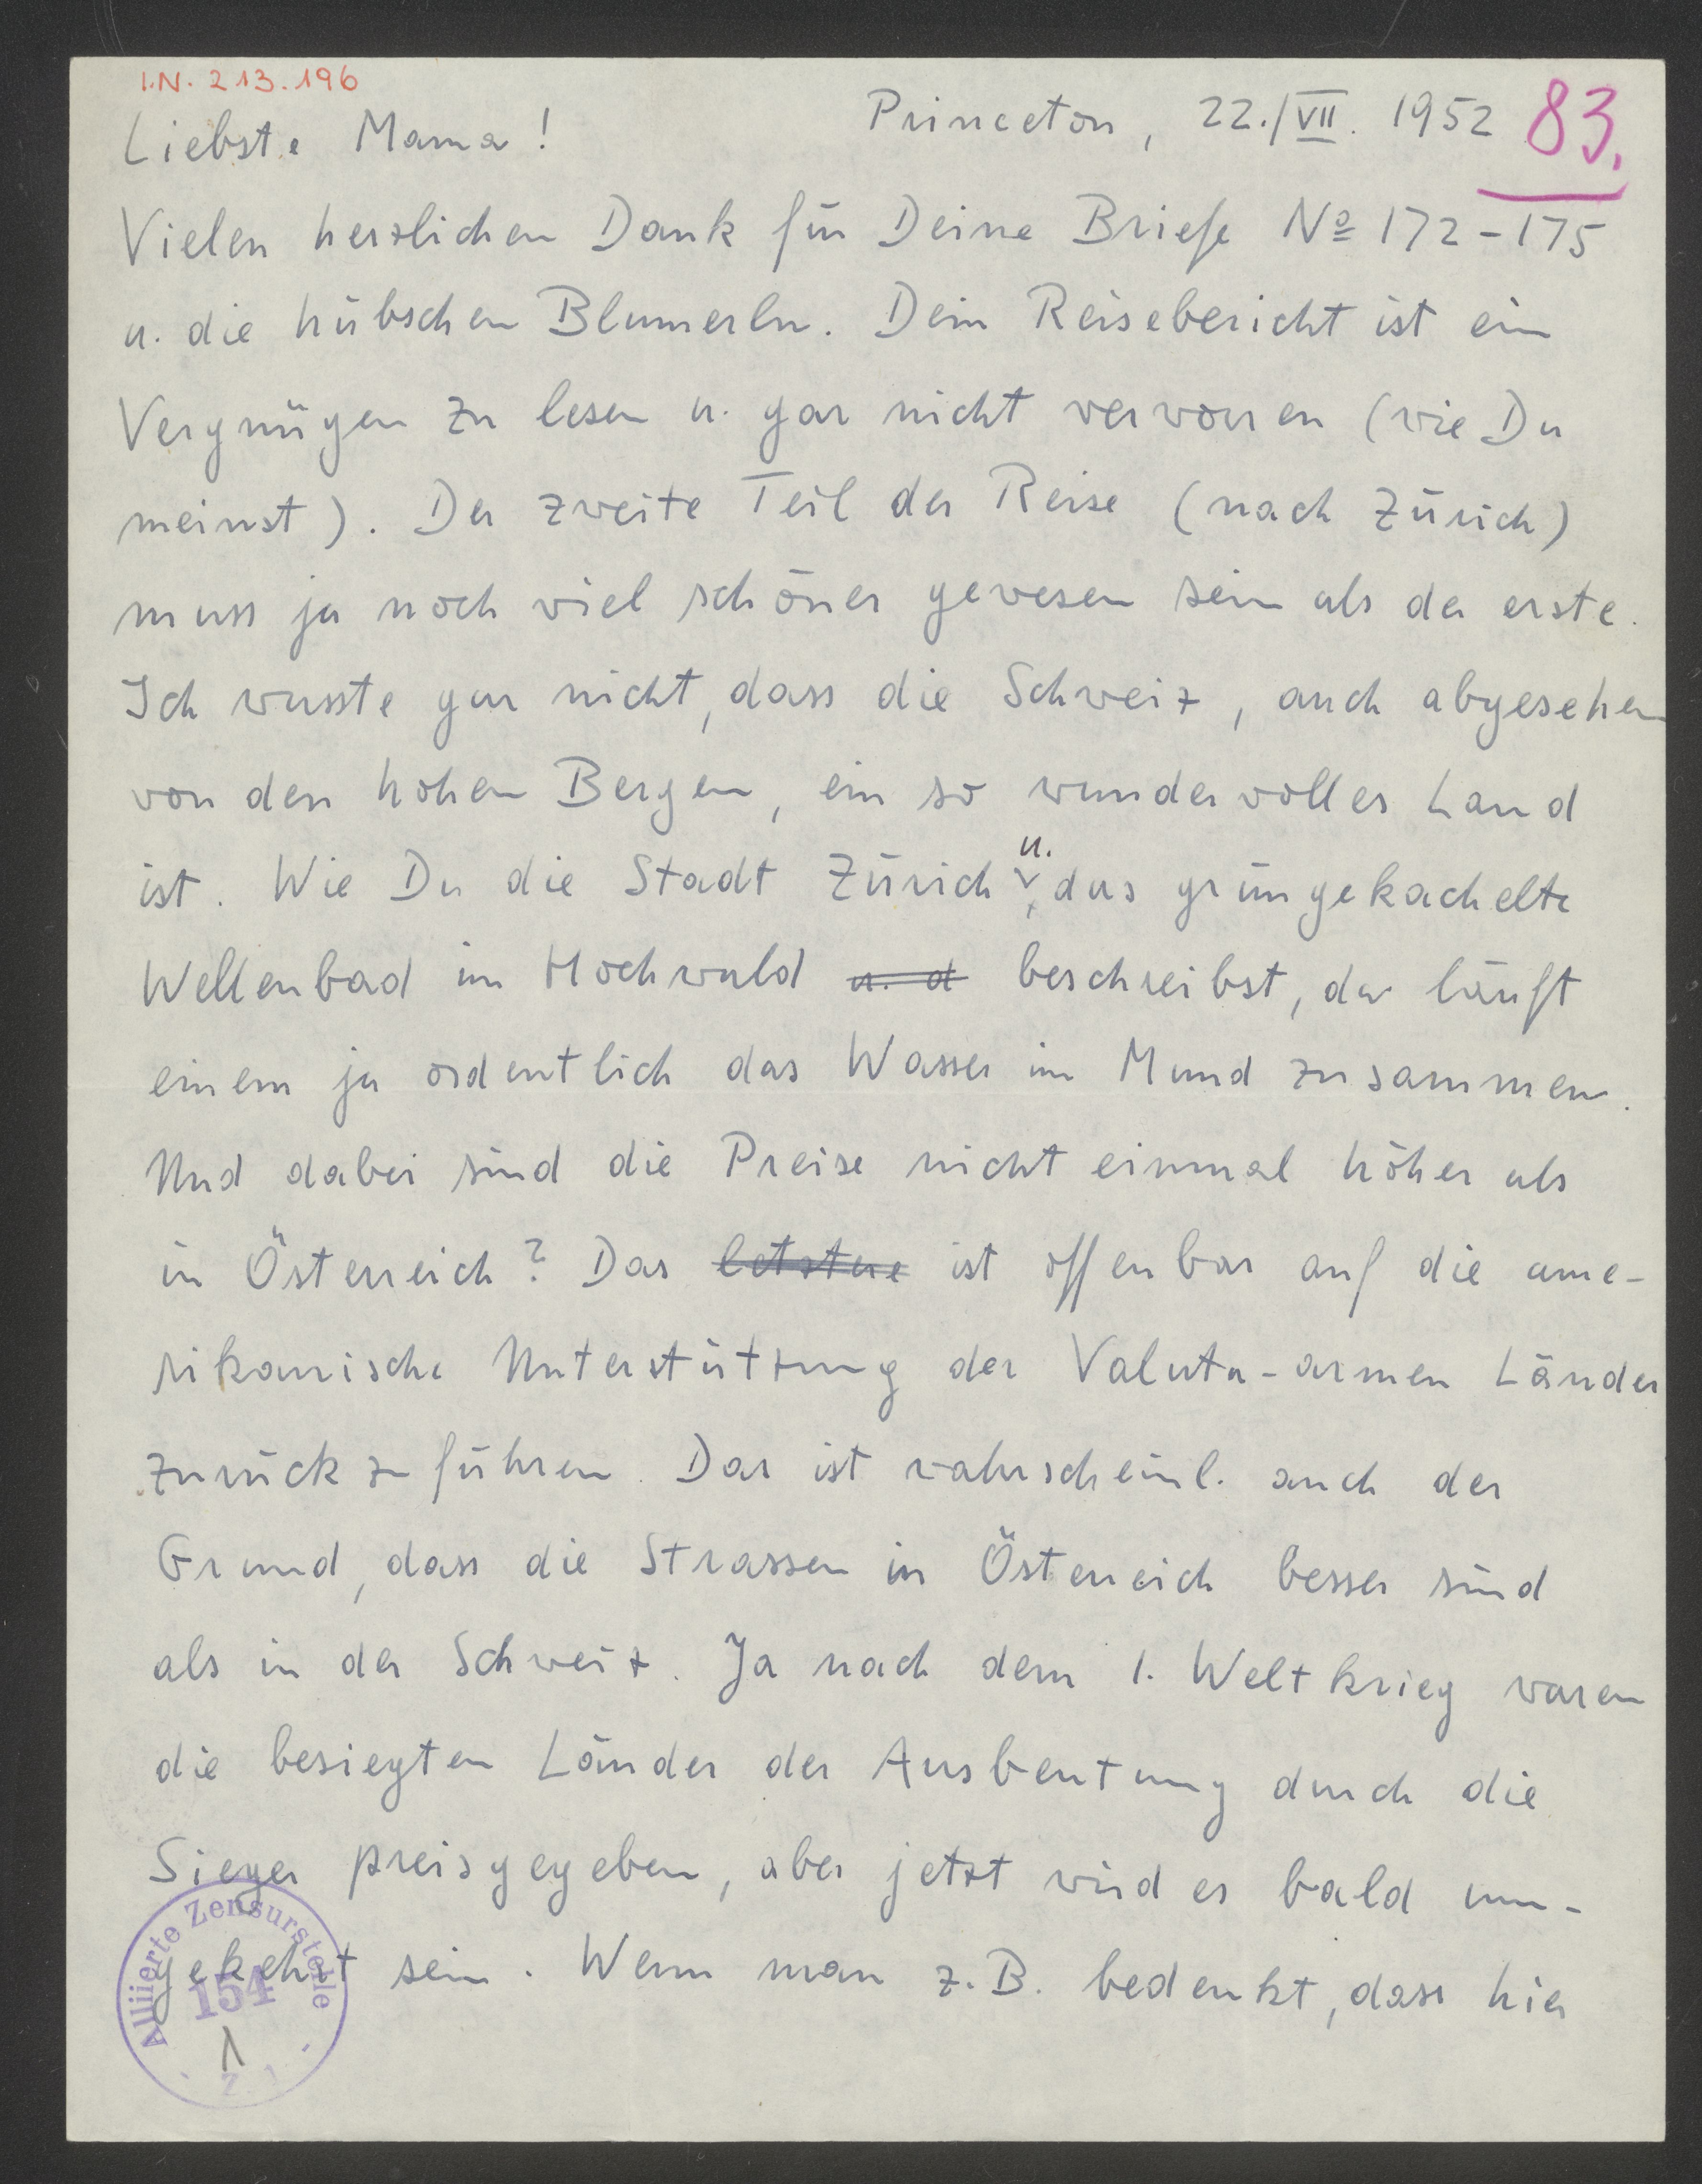 I.N. 213.196
Liebste Mama! Princeton, 22./VII. 1952 83.
Vielen herzlichen Dank für Deine Briefe Nº 172-175
u. die hübschen Blumerln. Dein Reisebericht ist ein
Vergnügen zu lesen u. gar nicht verworren (wie Du
meinst). Der zweite Teil der Reise (nach Zürich)
muss ja noch viel schöner gewesen sein als der erste.
Ich wusste gar nicht, dass die Schweiz, auch abgesehen
von den hohen Bergen, ein so wundervolles Land
ist. Wie Du die Stadt Zürich u. das grüngekachelte
Wellenbad im Hochwald u. d beschreibst, da läuft
einem ja ordentlich das Wasser im Mund zusammen.
Und dabei sind die Preise nicht einmal höher als
in Österreich? Das letztere ist offenbar auf die ame-
rikanische Unterstützung der Valuta-armen Länder
zurückzuführen. Das ist wahrscheinl. auch der
Grund, dass die Strassen in Österreich besser sind
als in der Schweiz. Ja nach dem 1. Weltkrieg waren
die besiegten Länder der Ausbeutung durch die
Sieger preisgegeben, aber jetzt wird es bald um-
gekehrt sein. Wenn man z.B. bedenkt, dass hier
Alliierte Zensurstelle
154
1
Z. 1